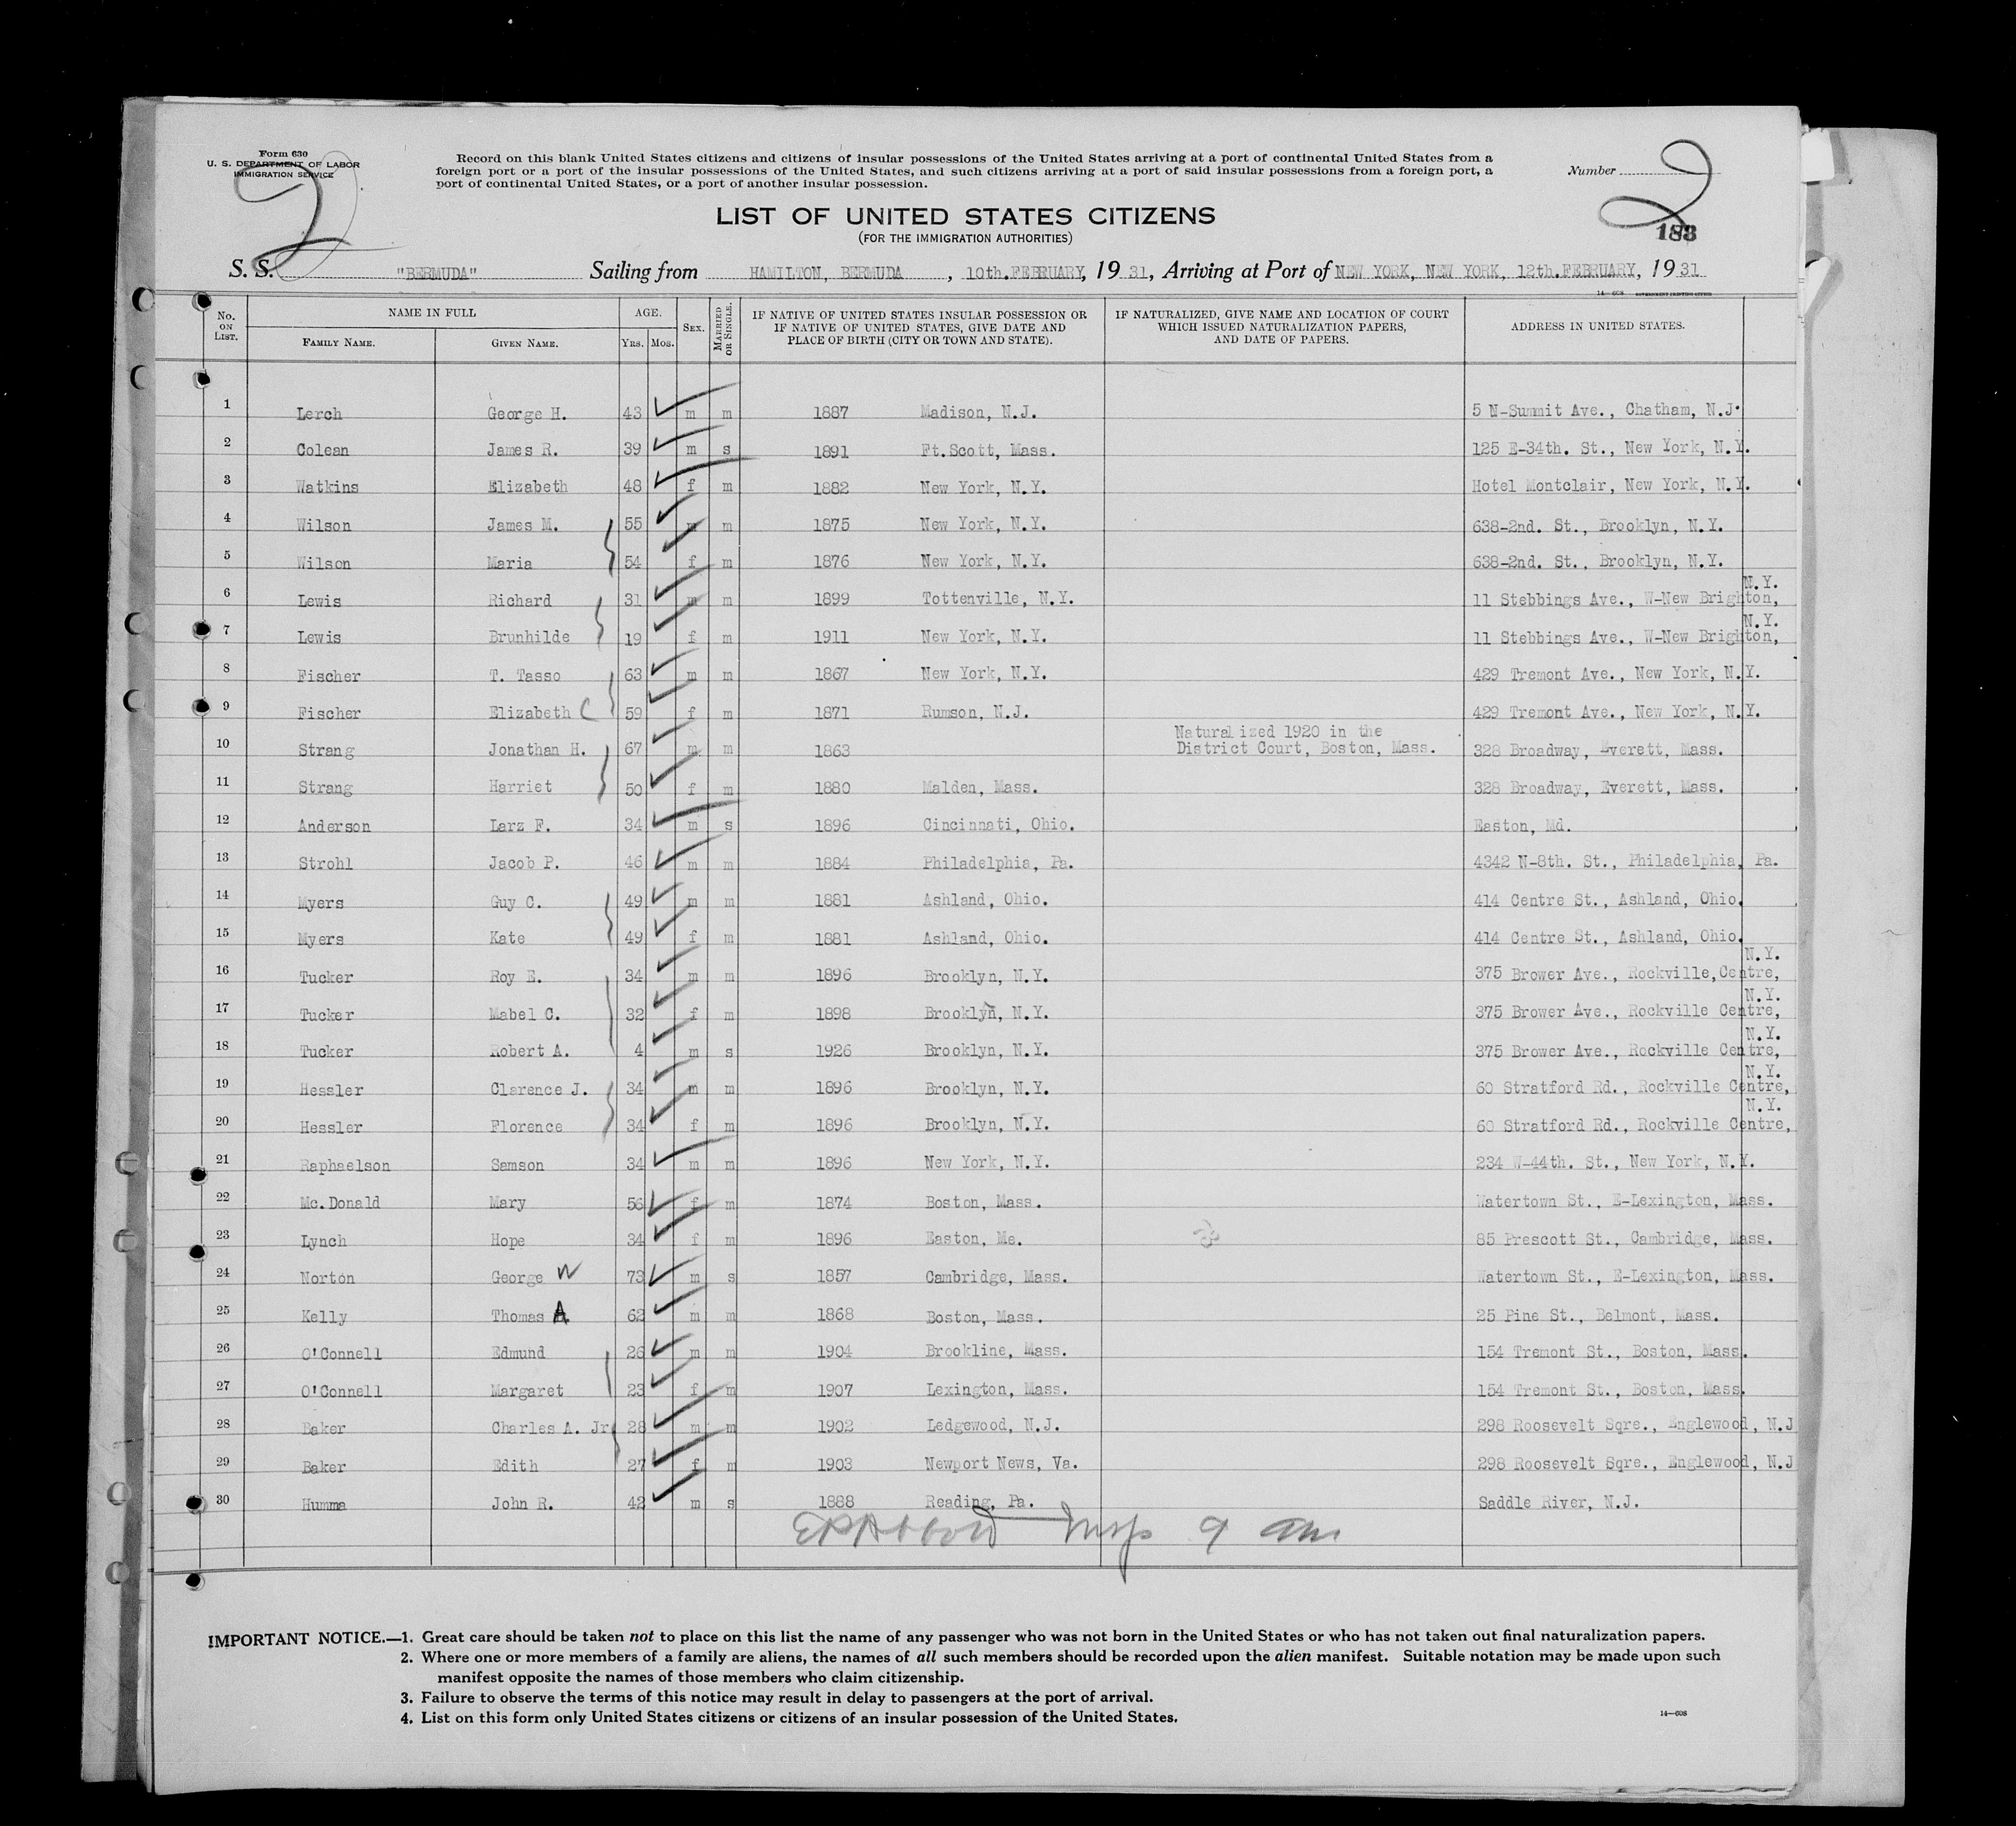 Form 630
U. S. DEPARTMENT OF LABOR
IMMIGRATION SERVICE
2
Record on this blank United States citizens and citizens of insular possessions of the United States arriving at a port of continental United States from a
foreign port or a port of the insular possessions of the United States, and such citizens arriving at a port of said insular possessions from a foreign port, a
port of continental United States, or a port of another insular possession.
Number 2
188
LIST OF UNITED STATES CITIZENS
(FOR THE IMMIGRATION AUTHORITIES)
S. S. "BERMUDA" Sailing from HAMILTON, BERMUDA, 10th.FEBRUARY, 1931, Arriving at Port of NEW YORK, NEW YORK, 12th.FEBRUARY, 1931
14—608 GOVERNMENT PRINTING OFFICE
No. ON LIST. NAME IN FULL AGE. SEX. MARRIED OR SINGLE. IF NATIVE OF UNITED STATES INSULAR POSSESSION OR IF NATIVE OF UNITED STATES, GIVE DATE AND PLACE OF BIRTH (CITY OR TOWN AND STATE). IF NATURALIZED, GIVE NAME AND LOCATION OF COURT WHICH ISSUED NATURALIZATION PAPERS, AND DATE OF PAPERS. ADDRESS IN UNITED STATES.
FAMILY NAME. GIVEN NAME. YRS. MOS.
1 Lerch George H. 43 m m 1887 Madison, N.J. 5 N-Summit Ave., Chatham, N.J.
2 Colean James R. 39 m s 1891 Ft.Scott, Mass. 125 E-34th. St., New York, N.Y.
3 Watkins Elizabeth 48 f m 1882 New York, N.Y. Hotel Montclair, New York, N.Y.
4 Wilson James M. 55 m m 1875 New York, N.Y. 638-2nd. St., Brooklyn, N.Y.
5 Wilson Maria 54 f m 1876 New York, N.Y. 638-2nd. St., Brooklyn, N.Y.
6 Lewis Richard 31 m m 1899 Tottenville, N.Y. 11 Stebbings Ave., W-New Brighton, N.Y.
7 Lewis Brunhilde 19 f m 1911 New York, N.Y. 11 Stebbings Ave., W-New Brighton, N.Y.
8 Fischer T. Tasso 63 m m 1867 New York, N.Y. 429 Tremont Ave., New York, N.Y.
9 Fischer Elizabeth C 59 f m 1871 Rumson, N.J. 429 Tremont Ave., New York, N.Y.
10 Strang Jonathan H. 67 m m 1863 Naturalized 1920 in the District Court, Boston, Mass. 328 Broadway, Everett, Mass.
11 Strang Harriet 50 f m 1880 Malden, Mass. 328 Broadway, Everett, Mass.
12 Anderson Larz F. 34 m s 1896 Cincinnati, Ohio. Easton, Md.
13 Strohl Jacob P. 46 m m 1884 Philadelphia, Pa. 4342 N-8th. St., Philadelphia, Pa.
14 Myers Guy C. 49 m m 1881 Ashland, Ohio. 414 Centre St., Ashland, Ohio.
15 Myers Kate 49 f m 1881 Ashland, Ohio. 414 Centre St., Ashland, Ohio.
16 Tucker Roy E. 34 m m 1896 Brooklyn, N.Y. 375 Brower Ave., Rockville,Centre, N.Y.
17 Tucker Mabel C. 32 f m 1898 Brooklyn, N.Y. 375 Brower Ave., Rockville Centre, N.Y.
18 Tucker Robert A. 4 m s 1926 Brooklyn, N.Y. 375 Brower Ave., Rockville Centre, N.Y.
19 Hessler Clarence J. 34 m m 1896 Brooklyn, N.Y. 60 Stratford Rd., Rockville Centre, N.Y.
20 Hessler Florence 34 f m 1896 Brooklyn, N.Y. 60 Stratford Rd., Rockville Centre, N.Y.
21 Raphaelson Samson 34 m m 1896 New York, N.Y. 234 W-44th. St., New York, N.Y.
22 Mc.Donald Mary 56 f m 1874 Boston, Mass. Watertown St., E-Lexington, Mass.
23 Lynch Hope 34 f m 1896 Easton, Me. 85 Prescott St., Cambridge, Mass.
24 Norton George W 73 m s 1857 Cambridge, Mass. Watertown St., E-Lexington, Mass.
25 Kelly Thomas A 62 m m 1868 Boston, Mass. 25 Pine St., Belmont, Mass.
26 O'Connell Edmund 26 m m 1904 Brookline, Mass. 154 Tremont St., Boston, Mass.
27 O'Connell Margaret 23 f m 1907 Lexington, Mass. 154 Tremont St., Boston, Mass.
28 Baker Charles A. Jr 28 m m 1902 Ledgewood, N.J. 298 Roosevelt Sqre., Englewood, N.J
29 Baker Edith 27 f m 1903 Newport News, Va. 298 Roosevelt Sqre., Englewood, N.J
30 Humma John R. 42 m s 1888 Reading, Pa. Saddle River, N.J.
IMPORTANT NOTICE.—1. Great care should be taken not to place on this list the name of any passenger who was not born in the United States or who has not taken out final naturalization papers.
2. Where one or more members of a family are aliens, the names of all such members should be recorded upon the alien manifest. Suitable notation may be made upon such
manifest opposite the names of those members who claim citizenship.
3. Failure to observe the terms of this notice may result in delay to passengers at the port of arrival.
4. List on this form only United States citizens or citizens of an insular possession of the United States.
14—608